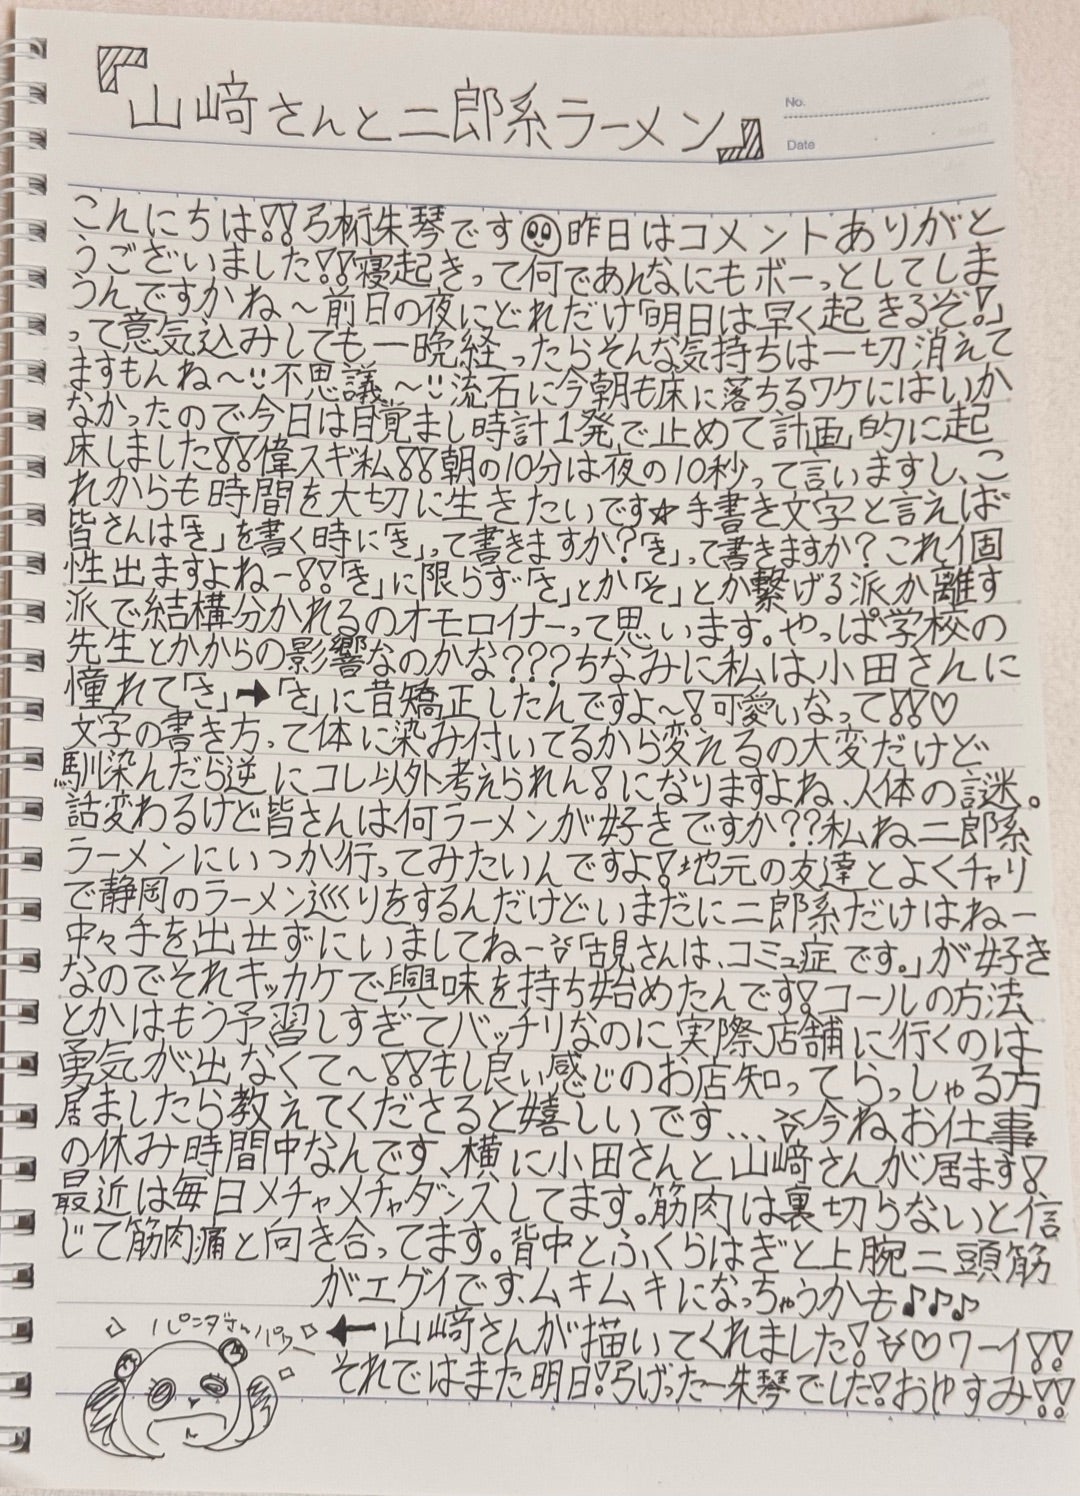 『山﨑さんと二郎系ラーメン』
No.
Date
こんにちは!!弓桁朱琴です昨日はコメントありがと
うございました!!寝起きって何であんなにもボーっとしてしま
うんですかね～前日の夜にどれだけ「明日は早く起きるぞ!」
って意気込みしても一晩経ったらそんな気持ちは一切消えて
ますもんね～不思議～流石に今朝も床に落ちるワケにはいか
なかったので今日は目覚まし時計1発で止めて計画的に起
床しました!!偉スギ私!!朝の10分は夜の10秒って言いますし、こ
れからも時間を大切に生きたいです☆手書き文字と言えば
皆さんは「き」を書く時に「き」って書きますか?「き」って書きますか?これ個
性出ますよねー!!「き」に限らず「さ」とか「そ」とか繋げる派か離す
派で結構分かれるのオモロイナーって思います。やっぱ学校の
先生とかからの影響なのかな???ちなみに私は小田さんに
憧れて「き」→「き」に昔矯正したんですよ～!可愛いなって!!♡
文字の書き方って体に染み付いてるから変えるの大変だけど
馴染んだら逆にコレ以外考えられん!になりますよね、人体の謎。
話変わるけど皆さんは何ラーメンが好きですか??私ね二郎系
ラーメンにいつか行ってみたいんですよ!地元の友達とよくチャリ
で静岡のラーメン巡りをするんだけどいまだに二郎系だけはねー
中々手を出せずにいましてねー「古見さんは、コミュ症です。」が好き
なのでそれキッカケで興味を持ち始めたんです!コールの方法
とかはもう予習しすぎてバッチリなのに実際店舗に行くのは
勇気が出なくて～!!もし良い感じのお店知ってらっしゃる方
居ましたら教えてくださると嬉しいです...今ね、お仕事
の休み時間中なんです、横に小田さんと山﨑さんが居ます!
最近は毎日メチャメチャダンスしてます。筋肉は裏切らないと信
じて筋肉痛と向き合ってます。背中とふくらはぎと上腕二頭筋
がエグイです、ムキムキになっちゃうかも♪♪♪
←山﨑さんが描いてくれました!♡ワーイ!!
それではまた明日!弓げったー朱琴でした!おやすみ!!